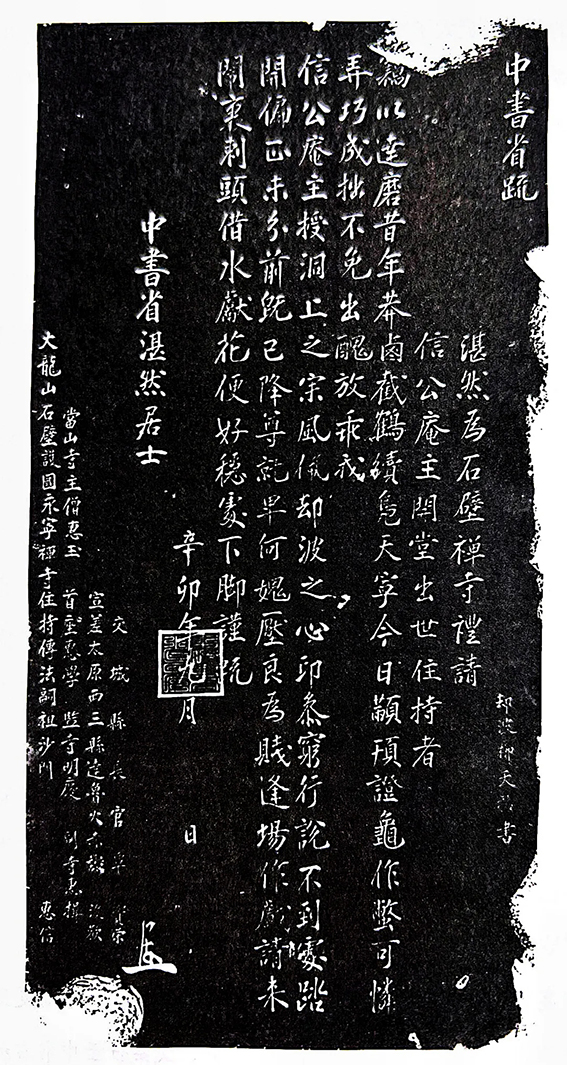 中書省疏
却波柳天䕫書
湛然為石壁禪寺禮請
信公庵主開堂出世住持者
竊以達磨昔年莽鹵截鶴續鳧天寧今日顢頇證龜作鼈可憐
弄巧成拙不免出醜放乖我
信公庵主授洞上之宗風佩却波之心印叅窮行說不到處踏
開偏正未分前既已降尊就卑何媿壓良為賤逢塲作戲請來
鬧裏刺頭借水獻花便好穩處下脚謹疏
辛卯年九月 日
中書省湛然居士
交城縣長官覃資榮
宣差太原西三縣達魯火赤
當山寺主僧惠玉 首座惠學 監寺明慶 副寺惠
大龍山石壁護國永寧禪寺住持傳法嗣祖沙門 惠信